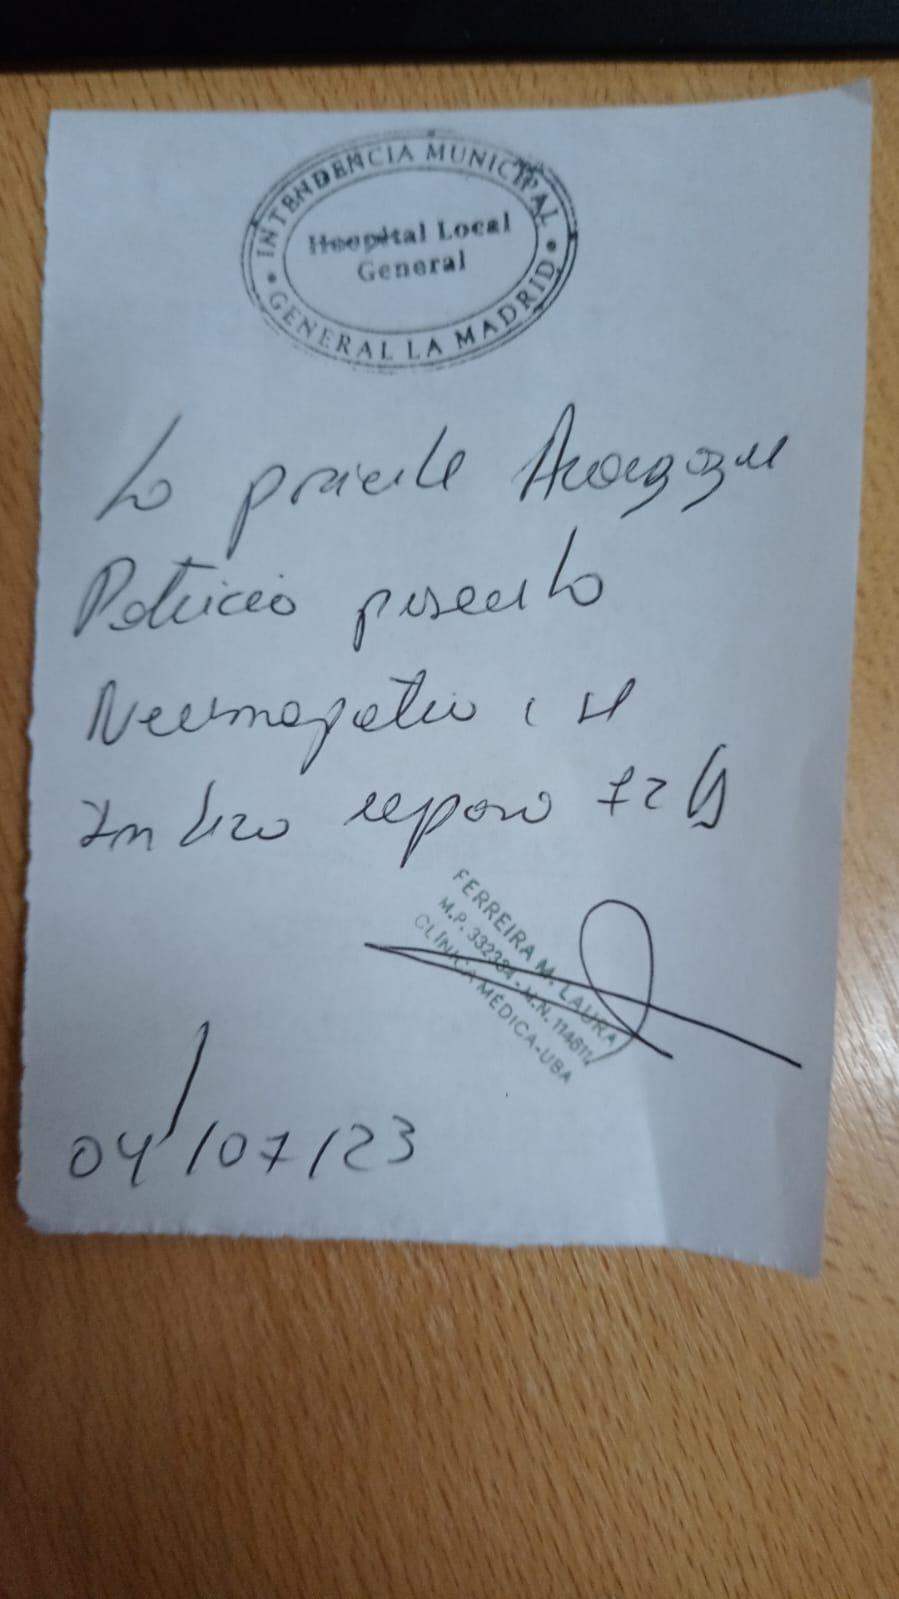 INTENDENCIA MUNICIPAL
Hospital Local
General
GENERAL LA MADRID
La paciente
Patricia presenta
Neumopatia, se
indica reposo 72 hs
FERREIRA M. LAURA
M.P. 332384 - M.N. 114611
CLÍNICA MÉDICA-UBA
04/07/23